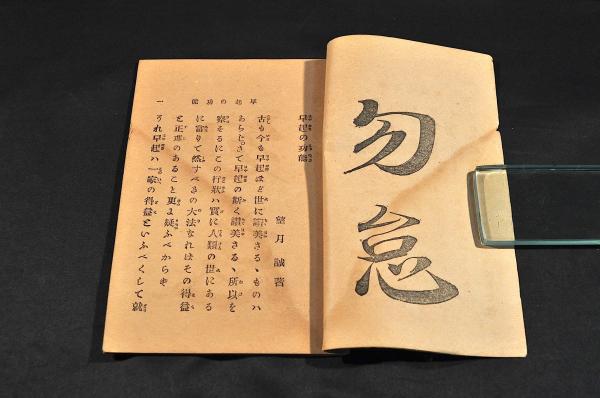 勿怠
早起の功能
望月誠著
古も今も早起ほど世に讃美さるゝものハ
あらた。さて早起の斯く讃美さるゝ所以を
察するにこの行狀ハ實に人類の世にある
に當りて然すべきの大法なれはその得益
と正理のあること更よ疑ふべからす
それ早起ハ一家の得益といふべくして就
早起の功能
一